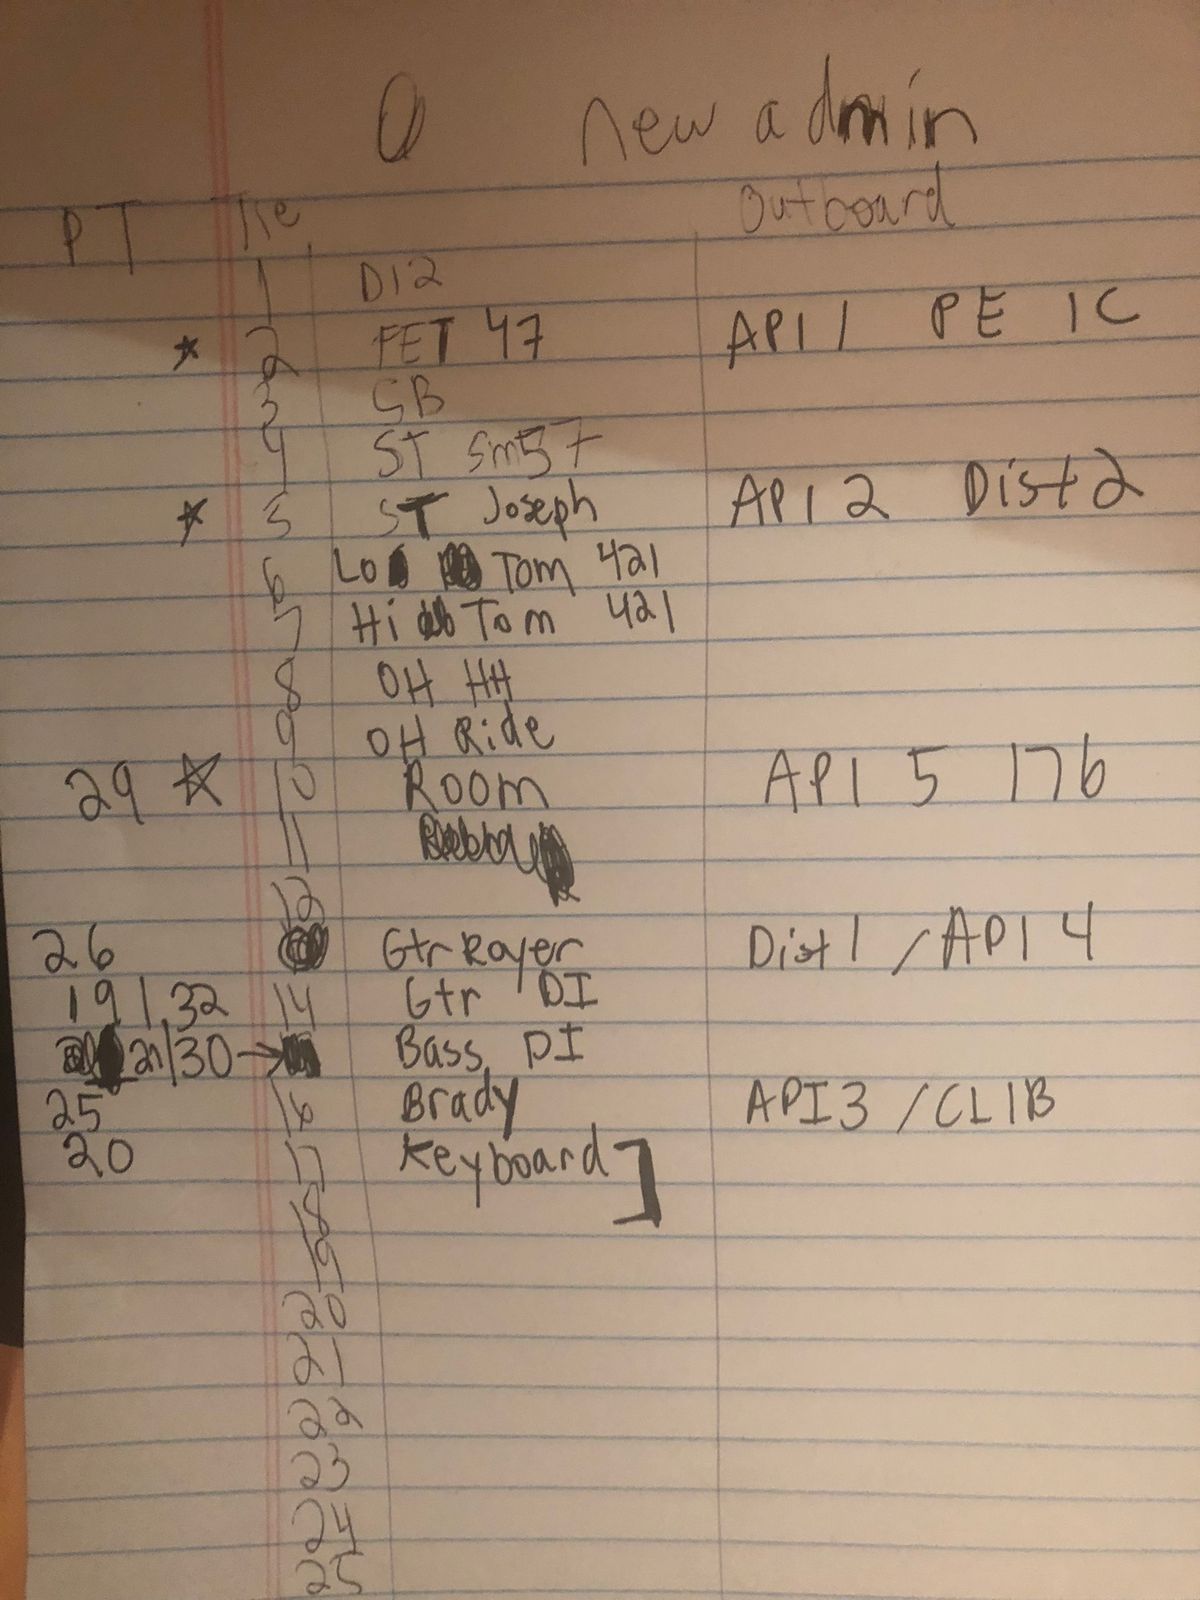 0 new admin
PT Outboard
1 D12
2 FET 47 API 1 PE 1C
3 SB
4 ST Sm57
5 ST Joseph API 2 Dist 2
6 Lo Tom 421
7 Hi Tom 421
8 OH HH
9 OH Ride
29 10 Room API 5 176
11
12
26 Gtr Royer Dist 1 / API 4
19 / 32 14 Gtr DI
21/30 → Bass DI
25 16 Brady API 3 / CL1B
20 17 Keyboard ]
18
19
20
21
22
23
24
25